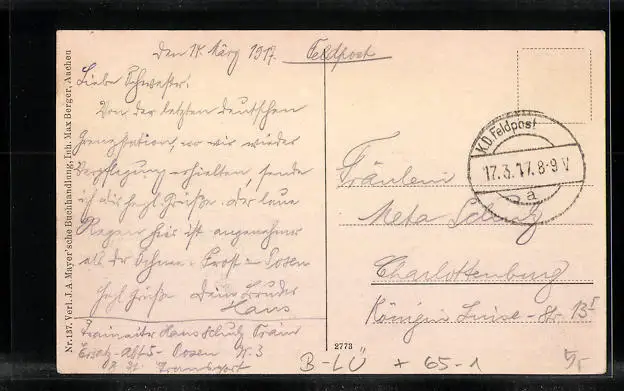 den 14. März 1917.
Feldpost
Liebe Schwester.
Von der letzten deutschen
Grenzstation, wo wir wieder
Verpflegung erhielten, sende
ich dir herzl. Grüße. Der laue
Regen hier ist angenehmer
als der Schnee Frost in Posen
Herzl Grüße Dein Bruder
Hans
Hans Schulz Train
Ersatz-Abt 5 - Posen N. 3
Transport
Fräulein
Meta Schulz
Charlottenburg
Königin Luise-Str. 13 I
K.D. Feldpost
17.3.17. 8-9 V
a
Nr. 137. Verl. J. A. Mayer'sche Buchhandlung, Inh. Max Berger, Aachen
2773
B-LÜ + 65-1
5,-